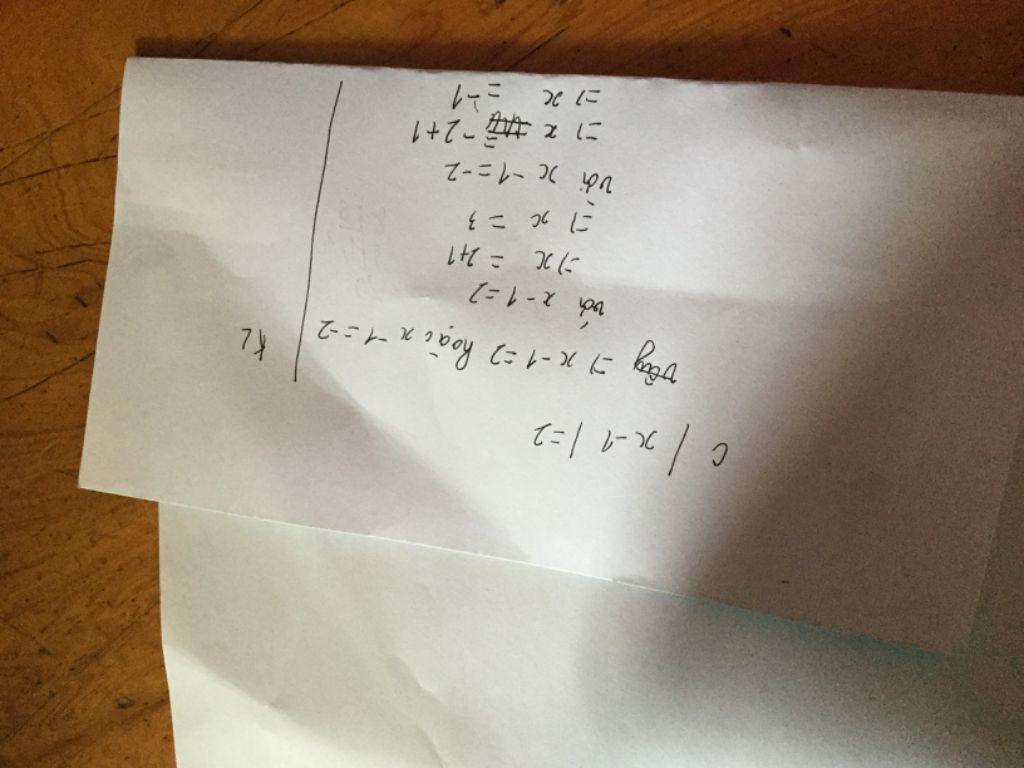 c |x-1|=2
vậy => x-1=2 hoặc x-1=-2
với x-1=2
=> x = 2+1
=> x = 3
với x-1=-2
=> x = -2+1
=> x = -1
KL